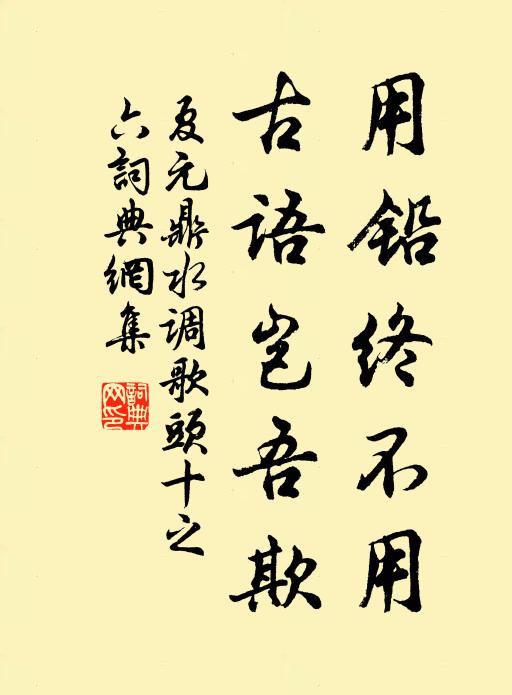 用铅终不用
古语岂吾欺
夏元鼎水调歌头十之
六詞典網集
詞典
网印